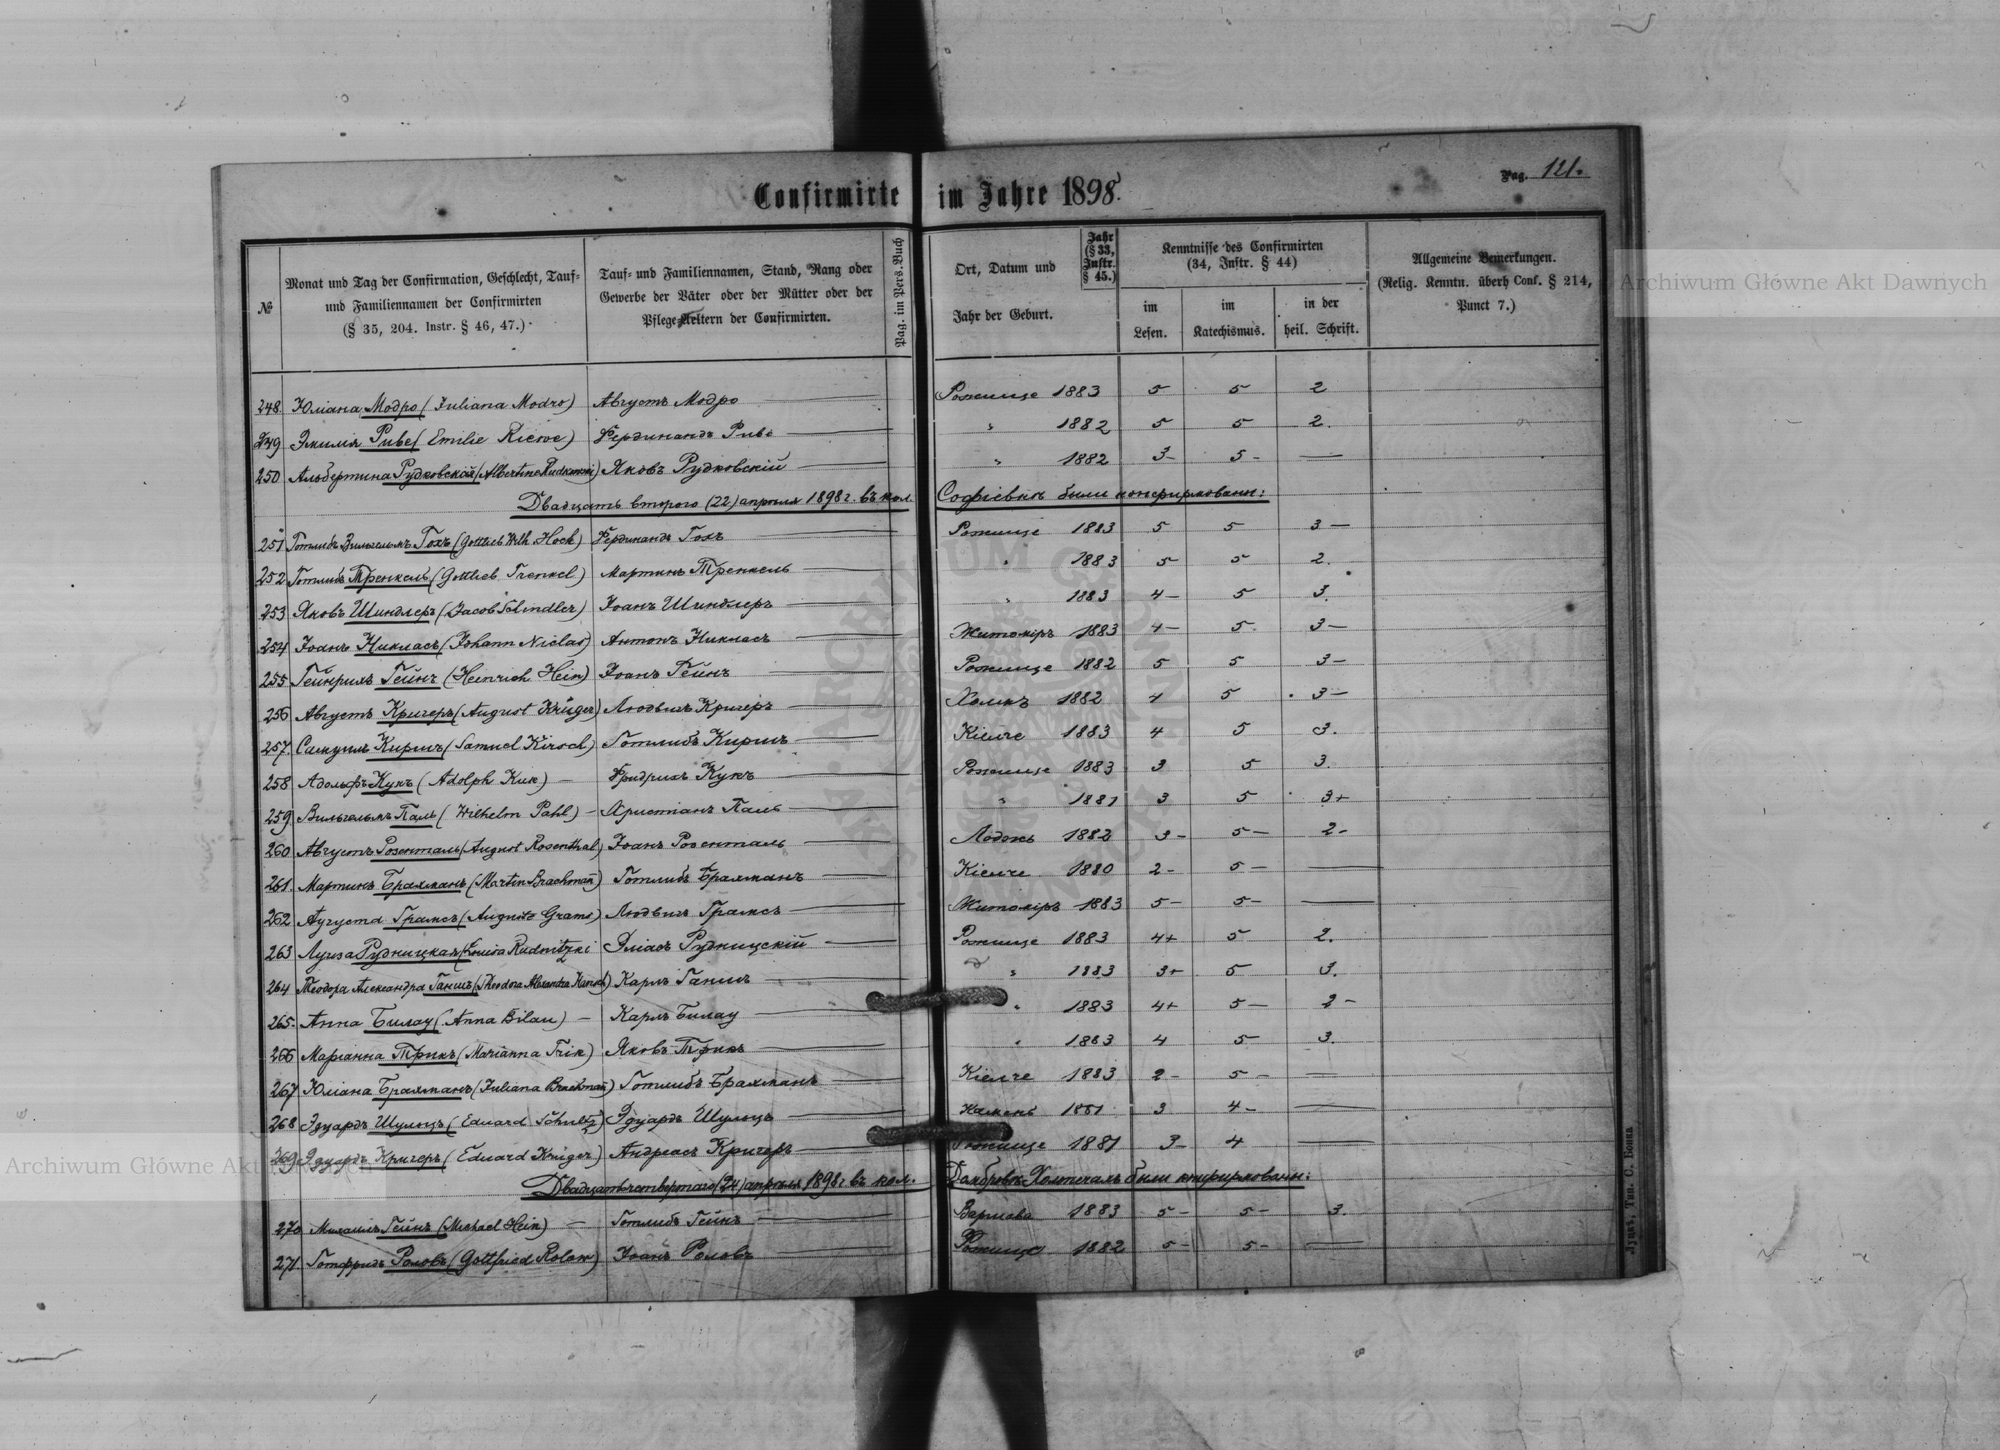 Confirmirte im Jahre 1898.
Pag. 121.
№
Monat und Tag der Confirmation, Geschlecht, Tauf-
und Familiennamen der Confirmirten
(§ 35, 204. Instr. § 46, 47.)
Tauf- und Familiennamen, Stand, Rang oder
Gewerbe der Väter oder der Mütter oder der
Pflege-Aeltern der Confirmirten.
Pag. im Pers.Buch
Ort, Datum und
Jahr der Geburt.
Jahr
(§ 33,
Instr.
§ 45.)
Kenntnisse des Confirmirten
(34, Instr. § 44)
im
Lesen.
im
Katechismus.
in der
heil. Schrift.
Allgemeine Bemerkungen.
(Relig. Kenntn. überh Conf. § 214,
Punct 7.)
248. Юліана Модро (Juliana Modro) Августъ Модро Рожище 1883 5 5 2
249 Эмилія Риве (Emilie Riewe) Фердинандъ Риве " 1882 5 5 2.
250 Альбертина Рудковская (Albertine Rudkowski) Яковъ Рудковскій " 1882 3- 5- —
Двадцать втораго (22) апреля 1898 г. въ кол. Софіевкѣ были конфирмованы:
251 Готлибъ Вильгельмъ Гохъ (Gottlieb Wilh. Hoch) Фердинандъ Гохъ Рожище 1883 5 5 3 —
252 Готлибъ Тренкель (Gottlieb Trenkel) Мартинъ Тренкель " 1883 5- 5 2.
253 Яковъ Шиндлеръ (Jacob Schindler) Іоанъ Шиндлеръ " 1883 4- 5 3.
254 Іоанъ Никласъ (Johann Niclas) Антонъ Никласъ Житомiръ 1883 4- 5. 3-
255 Гейнрихъ Гейнъ (Heinrich Hein) Іоанъ Гейнъ Рожище 1882 5 5 3-
256 Августъ Кригеръ (August Krüger) Людвигъ Кригеръ Холмъ 1882 4 5 3-
257. Самуилъ Киршъ (Samuel Kirsch) Готлибъ Киршъ Кіелче 1883 4 5 3.
258 Адольфъ Кукъ (Adolph Kuk) — Фридрихъ Кукъ Рожище 1883 3 5 3.
259 Вильгельмъ Паль (Wilhelm Pahl) — Христіанъ Паль " 1881 3 5 3+
260 Августъ Розенталь (August Rosenthal) Іоанъ Розенталь Лодзь 1882 3- 5- 2-
261. Мартинъ Брахманъ (Martin Brachman) Готлибъ Брахманъ Кіелче 1880 2- 5- —
262 Аугуста Грамсъ (Augusta Grams) Людвигъ Грамсъ Житоміръ 1883 5- 5- —
263 Луиза Рудницкая (Louisa Rudnitzki Эліасъ Рудницскій Рожище 1883 4+ 5 2.
264 Теодора Александра Ганшъ (Theodora Alexandra Hansch) Карлъ Ганшъ " 1883 3+ 5 3.
265. Анна Билау (Anna Bilau) — Карлъ Билау " 1883 4+ 5- 2-
266 Маріанна Трикъ (Marianna Trik) Яковъ Трикъ " 1883 4 5- 3.
267 Юліана Брахманъ (Juliana Brachman) Готлибъ Брахманъ Кіелче 1883 2- 5- —
268 Эдуардъ Шульцъ (Eduard Schultz) Эдуардъ Шульцъ Камень 1881 3 4- —
269 Эдуардъ Кригеръ (Eduard Krüger) Андреасъ Кригеръ Рожище 1881 3- 4 —
Двадцать четвертаго (24) апреля 1898 г. въ кол. были конфирмованы:
270 Михаилъ Гейнъ (Michael Hein) — Готлибъ Гейнъ Варшава 1883 5- 5- 3.
271. Готфридъ Роловъ (Gottfried Rolow) Іоанъ Роловъ Рожище 1882 5- 5- —
Archiwum Główne Akt Dawnych
Archiwum Główne Akt